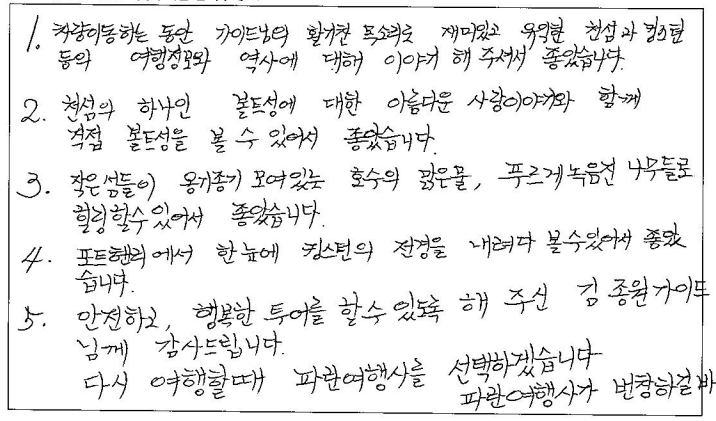 1.차량이동하는 동안 가이드님의 활기찬 목소리로 재미있고 유익한 천섬과 킹스턴
등의 여행정보와 역사에 대해 이야기 해 주셔서 좋았습니다.
2. 천섬의 하나인 볼트성에 대한 아름다운 사랑이야기와 함께
직접 볼트성을 볼 수 있어서 좋았습니다.
3. 작은섬들이 옹기종기 모여있는 호수의 맑은물, 푸르게 녹음진 나무들로
힐링할수있어서 좋았습니다.
4. 포트헨리에서 한눈에 킹스턴의 전경을 내려다 볼수있어서 좋았
습니다.
5. 안전하고, 행복한 투어를 할수 있도록 해 주신 김종원가이드
님께 감사드립니다.
다시 여행할때 파란여행사를 선택하겠습니다
파란여행사가 번창하길바